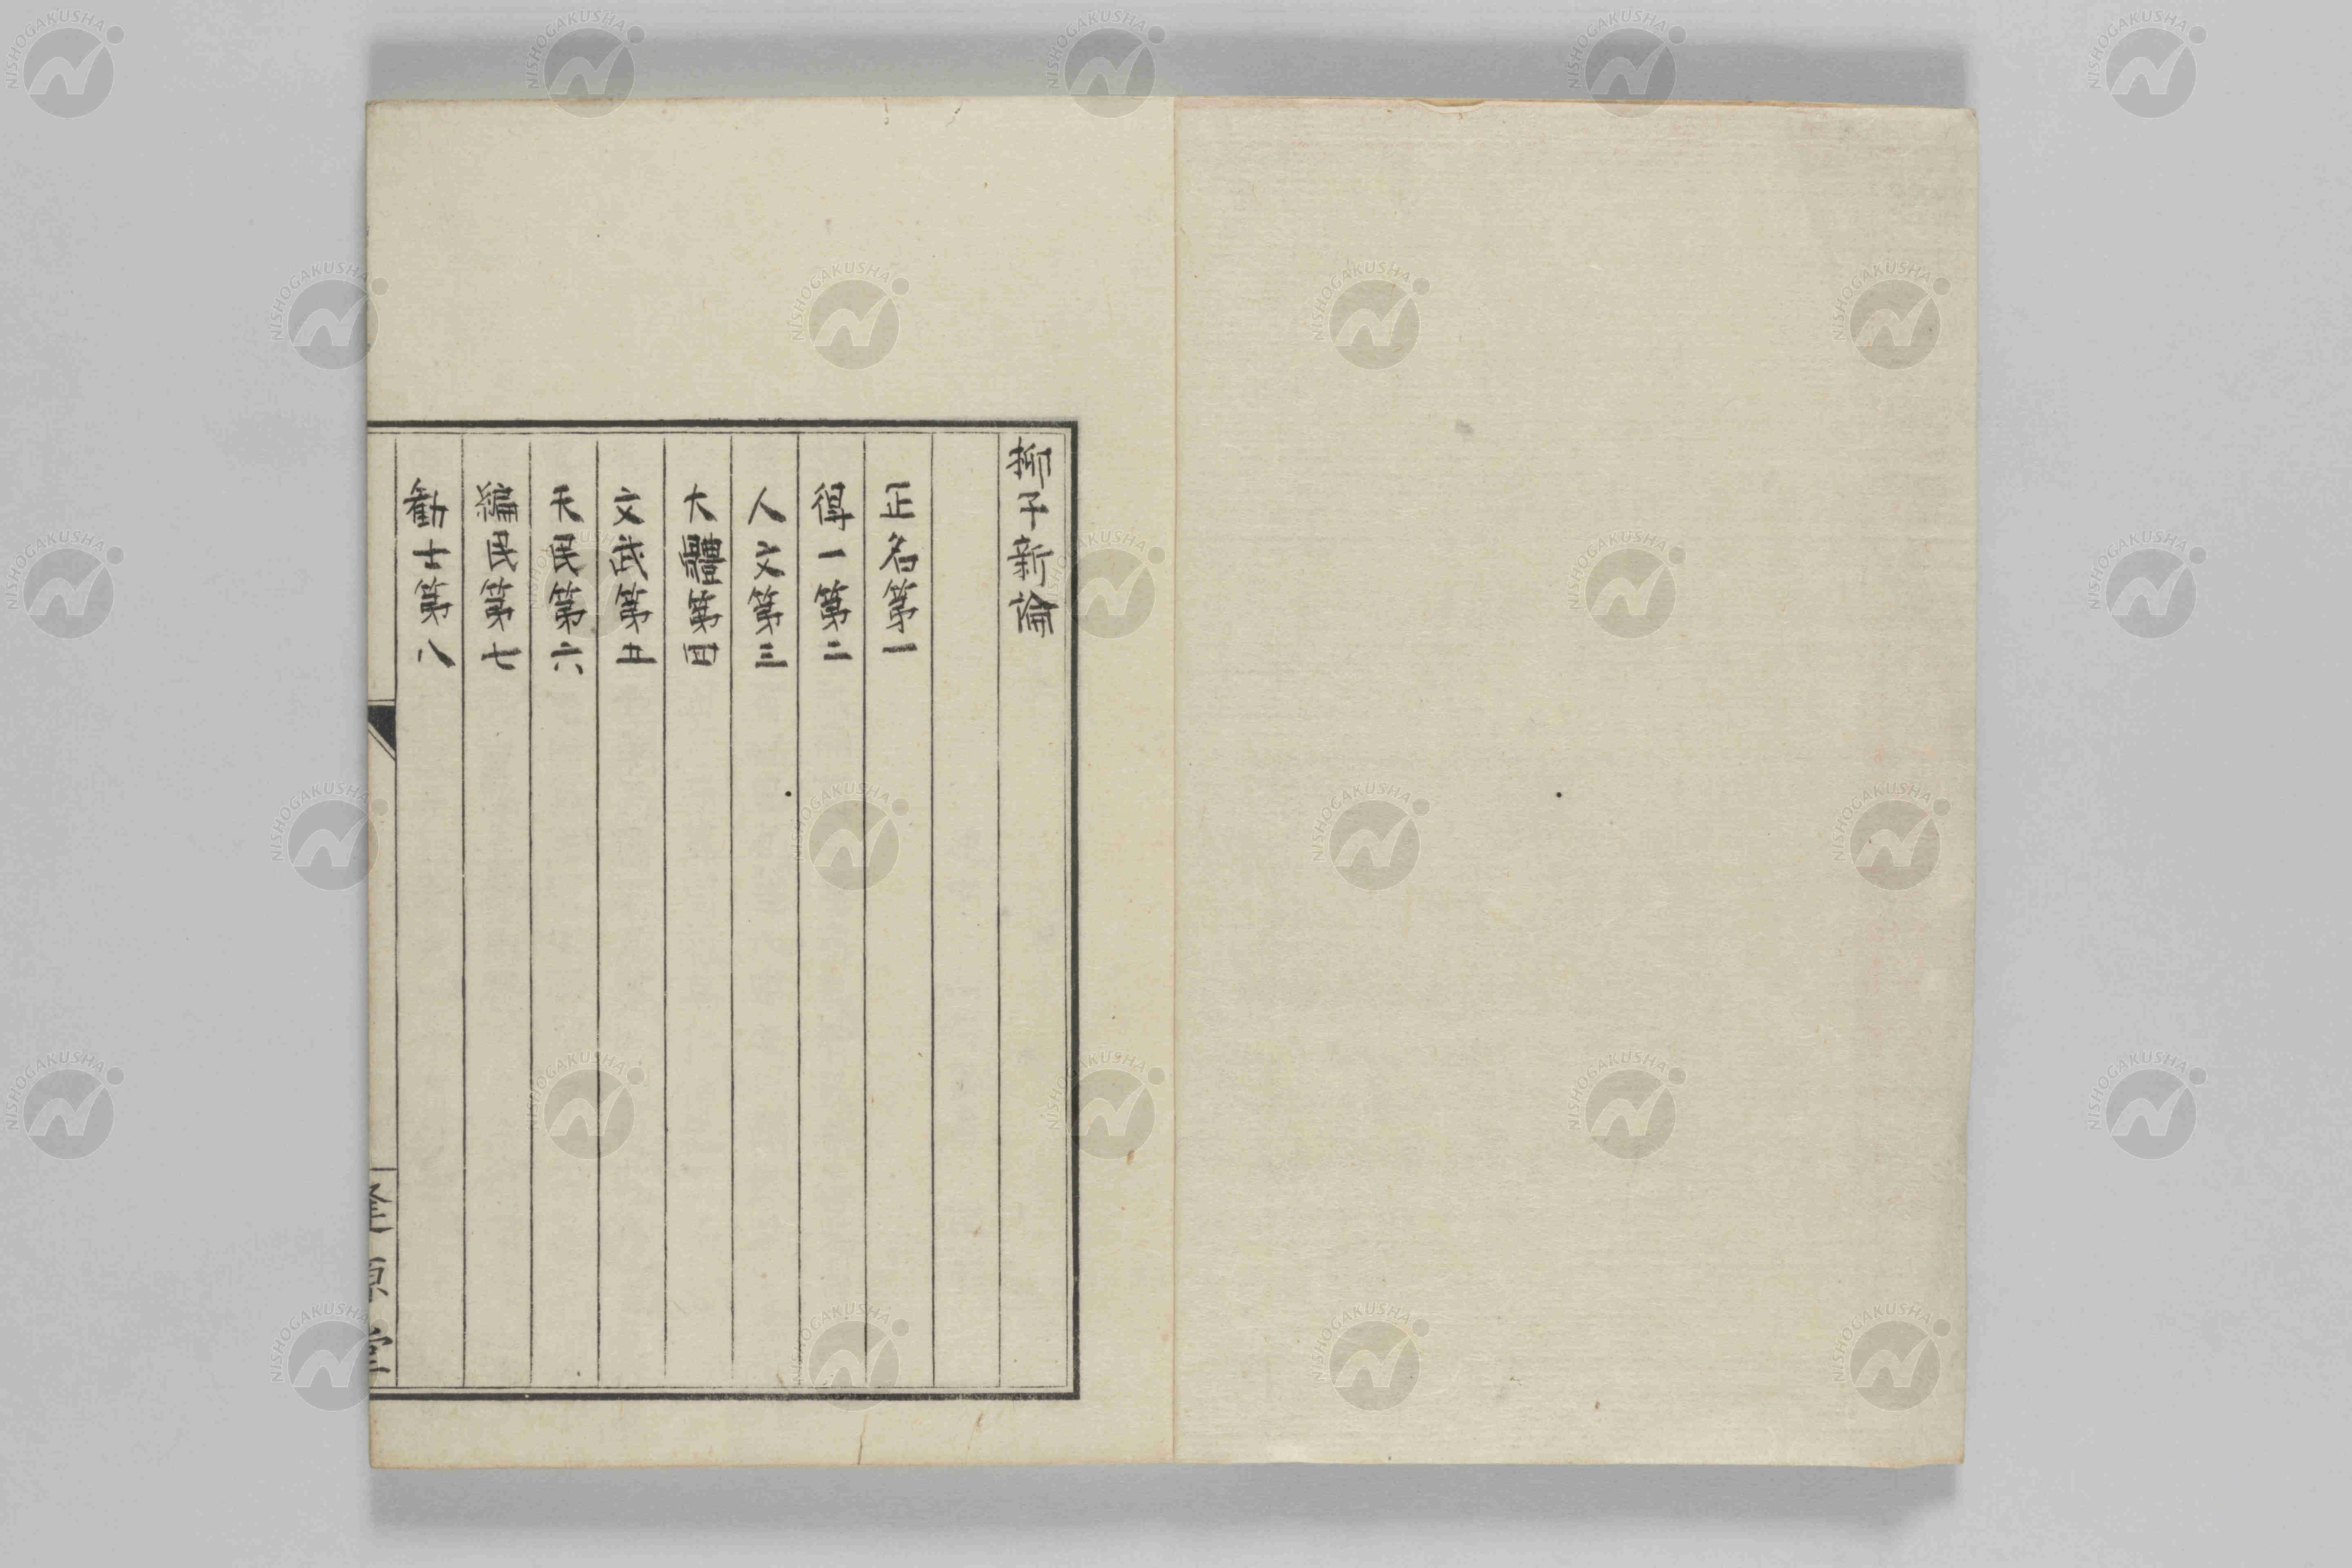 柳子新論
正名第一
得一第二
人文第三
大體第四
文武第五
天民第六
編民第七
勸士第八
逢原堂
NISHOGAKUSHA